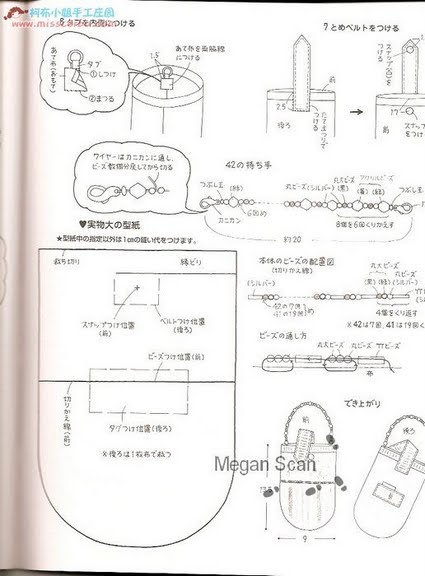 柯布小姐手工庄园
8 タブを内側につける
あて布(おもて)
タブ
①しつけ
②まつる
1.5
あて布を両脇線
につける
7 とめベルトをつける
2.5
前
後ろ
たてまつりで
つける
前
ワイヤーはカニカンに通し、
ビーズ数個分戻してから切る
42の持ち手
つぶし玉
(緑)
カニカン
6回め
丸ビーズ(シルバー)
丸大ビーズ
(黒)
アクリルビーズ
(緑)
つぶし玉
8個を6回くりかえす
約20
♥実物大の型紙
★型紙中の指定以外は1cmの縫い代をつけます。
裁ち切り
縁どり
スナップつけ位置
(前)
ベルトつけ位置
(後ろ)
ビーズつけ位置(前)
切りかえ線
(前)
タグつけ位置(後ろ)
※後ろは1枚布で裁つ
本体のビーズの配置図
(切りかえ線)
(シルバー)
42の7回
41の19回め
丸大ビーズ
丸ビーズ
(黒)
(緑)
(シルバー)
4個をくり返す
※42は7回、41は19回
ビーズの通し方
丸大ビーズ
丸ビーズ
竹ビーズ
布
でき上がり
前
後ろ
9
Megan Scan